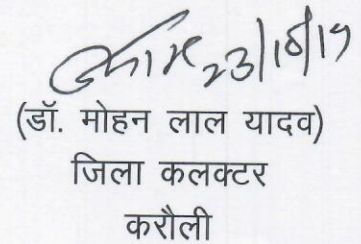 23/10/19
(डॉ. मोहन लाल यादव)
जिला कलक्टर
करौली